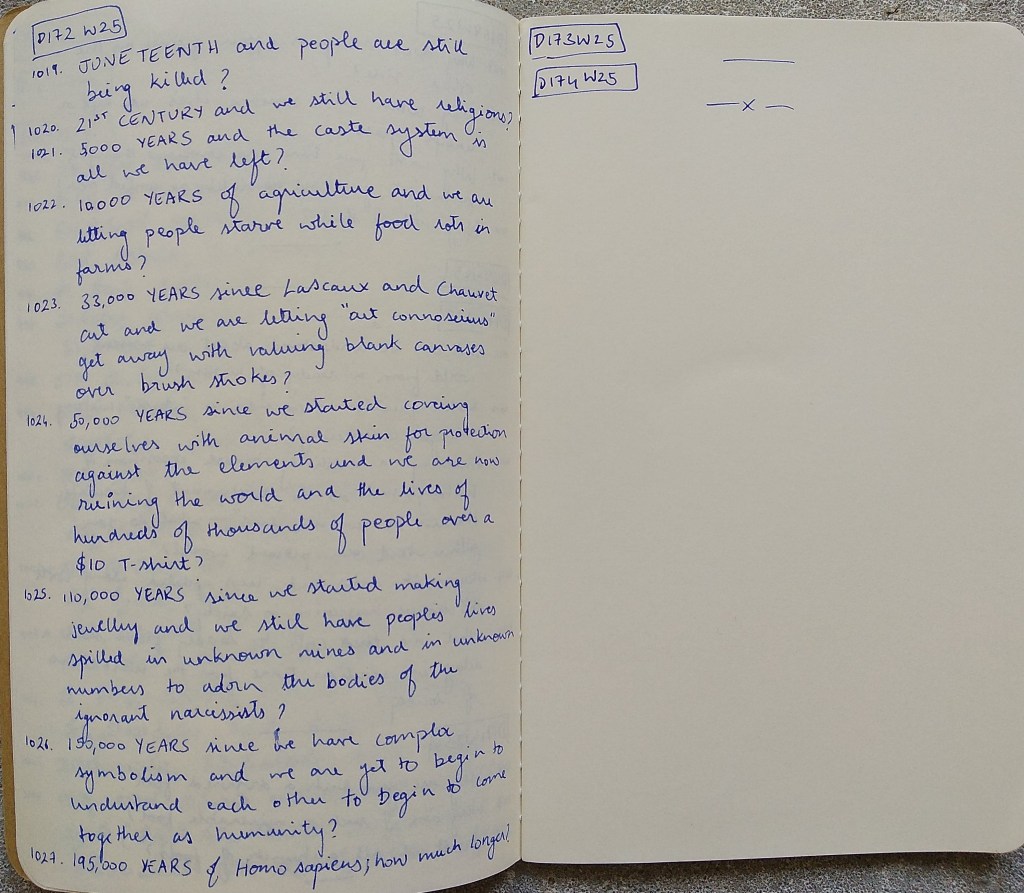 D172 W25
1019. JUNETEENTH and people are still
being killed?
1020. 21ST CENTURY and we still have religions?
1021. 5000 YEARS and the caste system is
all we have left?
1022. 10000 YEARS of agriculture and we are
letting people starve while food rots in
farms?
1023. 33,000 YEARS since Lascaux and Chauvet
art and we are letting "art connoseiurs"
get away with valuing blank canvases
over brush strokes?
1024. 50,000 YEARS since we started covering
ourselves with animal skin for protection
against the elements and we are now
ruining the world and the lives of
hundreds of thousands of people over a
$10 T-shirt?
1025. 110,000 YEARS since we started making
jewellry and we still have people's lives
spilled in unknown mines and in unknown
numbers to adorn the bodies of the
ignorant narcissists?
1026. 150,000 YEARS since we have complex
symbolism and we are yet to begin to
understand each other to begin to come
together as humanity?
1027. 195,000 YEARS of Homo sapiens; how much longer?
D173W25
D174W25
—x—